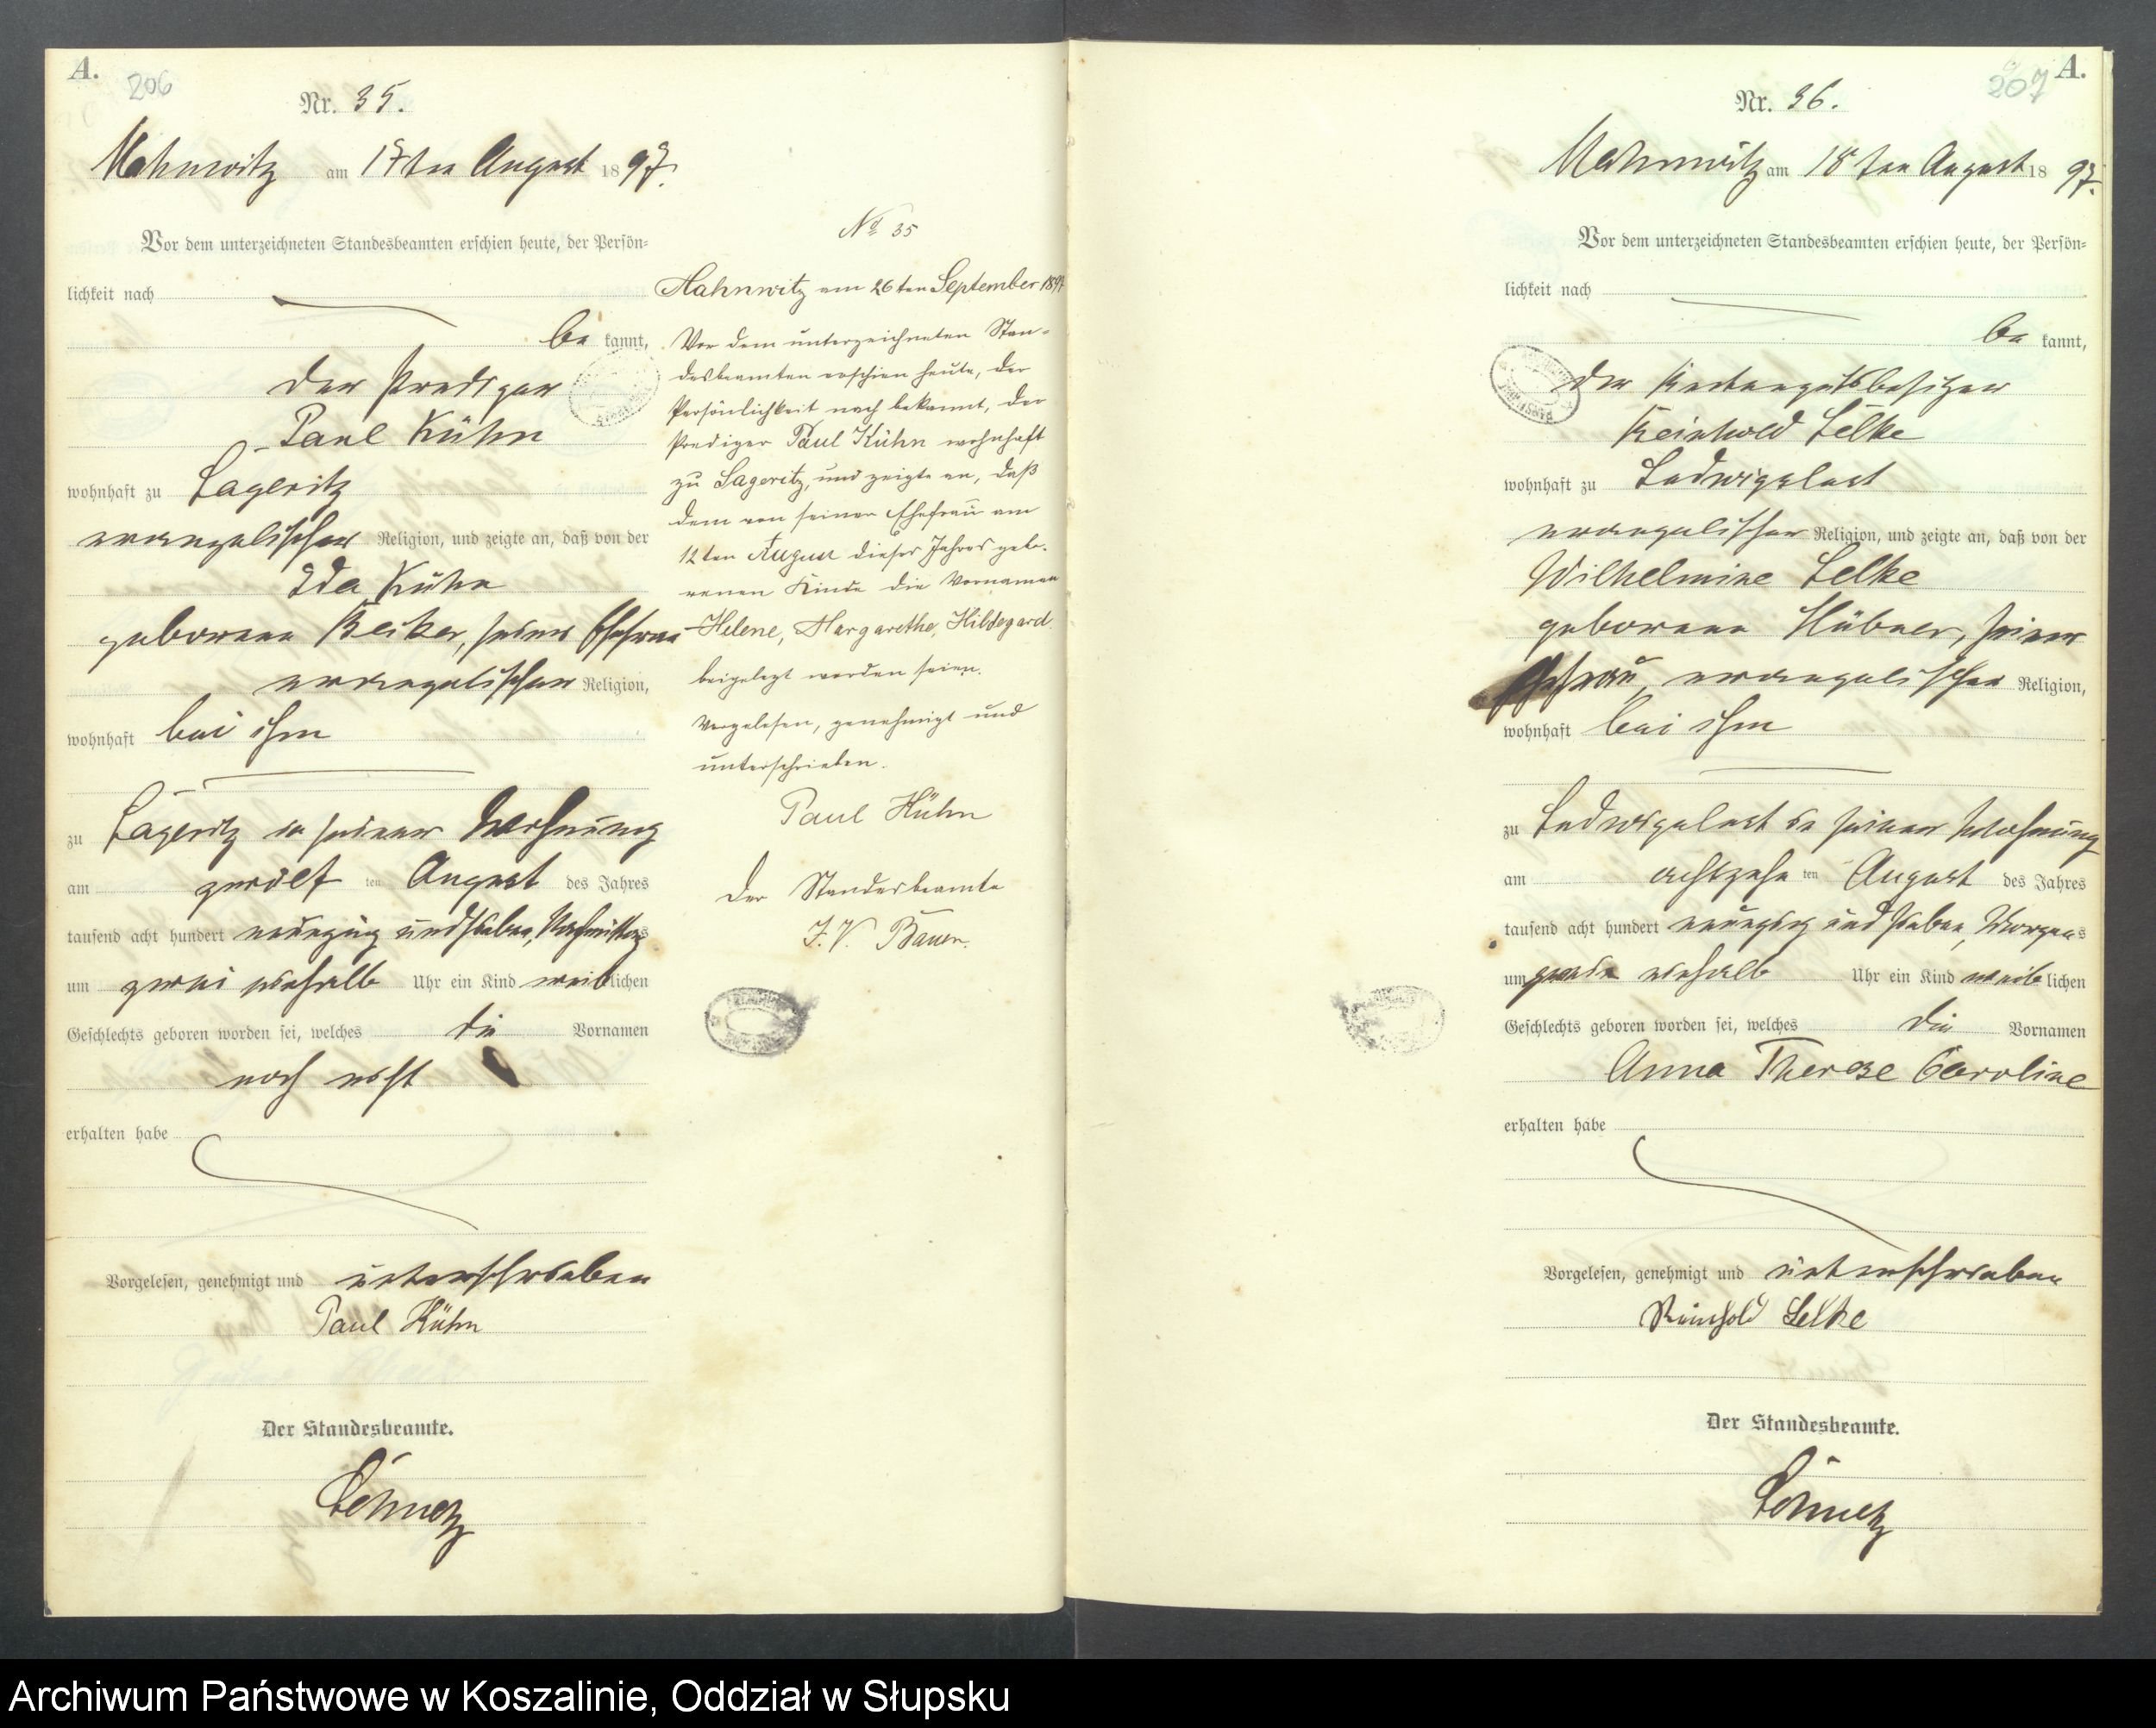 A.
206
Nr. 35.
Mahnwitz am 17ten August 1897.
Vor dem unterzeichneten Standesbeamten erschien heute, der Persön-
lichkeit nach
be kannt,
der Prediger
Paul Kühn
wohnhaft zu Lageritz
evangelischer Religion, und zeigte an, daß von der
Ida Kühn
geborene Becker, seiner Ehefrau
evangelischer Religion,
wohnhaft bei ihm
zu Lageritz in seiner Wohnung
am zwölf ten August des Jahres
tausend acht hundert neunzig und sieben, Nachmittags
um zwei einhalb Uhr ein Kind weiblichen
Geschlechts geboren worden sei, welches die Vornamen
noch nicht
erhalten habe
Vorgelesen, genehmigt und unterschrieben
Paul Kühn
Der Standesbeamte.
No 35
Mahnwitz am 26ten September 1897
Vor dem unterzeichneten Stan-
desbeamten erschien heute, der
Persönlichkeit nach bekannt, der
Prediger Paul Kühn wohnhaft
zu Lageritz, und zeigte an, daß
dem von seiner Ehefrau am
12ten August dieses Jahres gebo-
renen Kinde die Vornamen
Helene, Margarethe, Hildegard
beigelegt worden seien.
Vorgelesen, genehmigt und
unterschrieben.
Paul Kühn
Der Standesbeamte
J. V. Bauer.
A.
207
Nr. 36.
Mahnwitz am 18ten August 1897.
Vor dem unterzeichneten Standesbeamten erschien heute, der Persön-
lichkeit nach
be kannt,
der Rentengutsbesitzer
Reinhold Lelke
wohnhaft zu Ludwigslust
evangelischer Religion, und zeigte an, daß von der
Wilhelmine Lelke
geborene Hübner, seiner
Ehefrau, evangelischer Religion,
wohnhaft bei ihm
zu Ludwigslust in seiner Wohnung
am achtzehn ten August des Jahres
tausend acht hundert neunzig und sieben, Morgens
um einhalb Uhr ein Kind weiblichen
Geschlechts geboren worden sei, welches die Vornamen
Anna Therese Caroline
erhalten habe
Vorgelesen, genehmigt und unterschrieben
Reinhold Lelke
Der Standesbeamte.
Archiwum Państwowe w Koszalinie, Oddział w Słupsku